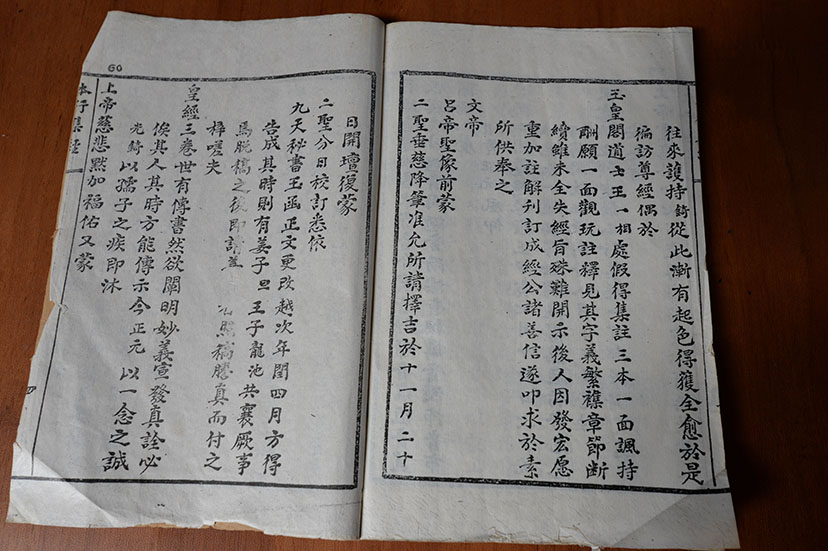 往來護持錡從此漸有起色得獲全愈於是
徧訪尊經偶於
玉皇閣道士王一相處假得集註三本一面諷持
酬願一面觀玩註釋見其字義繁襍章節斷
續雖未全失經旨殊難開示後人因發宏愿
重加註解刊訂成經公諸善信遂叩求於素
所供奉之
文帝
呂帝聖像前蒙
二聖垂慈降筆准允所請擇吉於十一月二十
日開壇復蒙
二聖分日校訂悉依
九天秘書玉函正文更改越次年閏四月方得
告成其時則有姜子旦王子龍池共襄厥事
焉脫稿之後即請
照稿謄真而付之
梓嗟夫
皇經三卷世有傳書然欲闡明妙義宣發真詮必
俟其人其時方能傳示今正元以一念之誠
光錡以孺子之疾即沐
上帝慈悲黙加福佑又蒙
本行集經
60